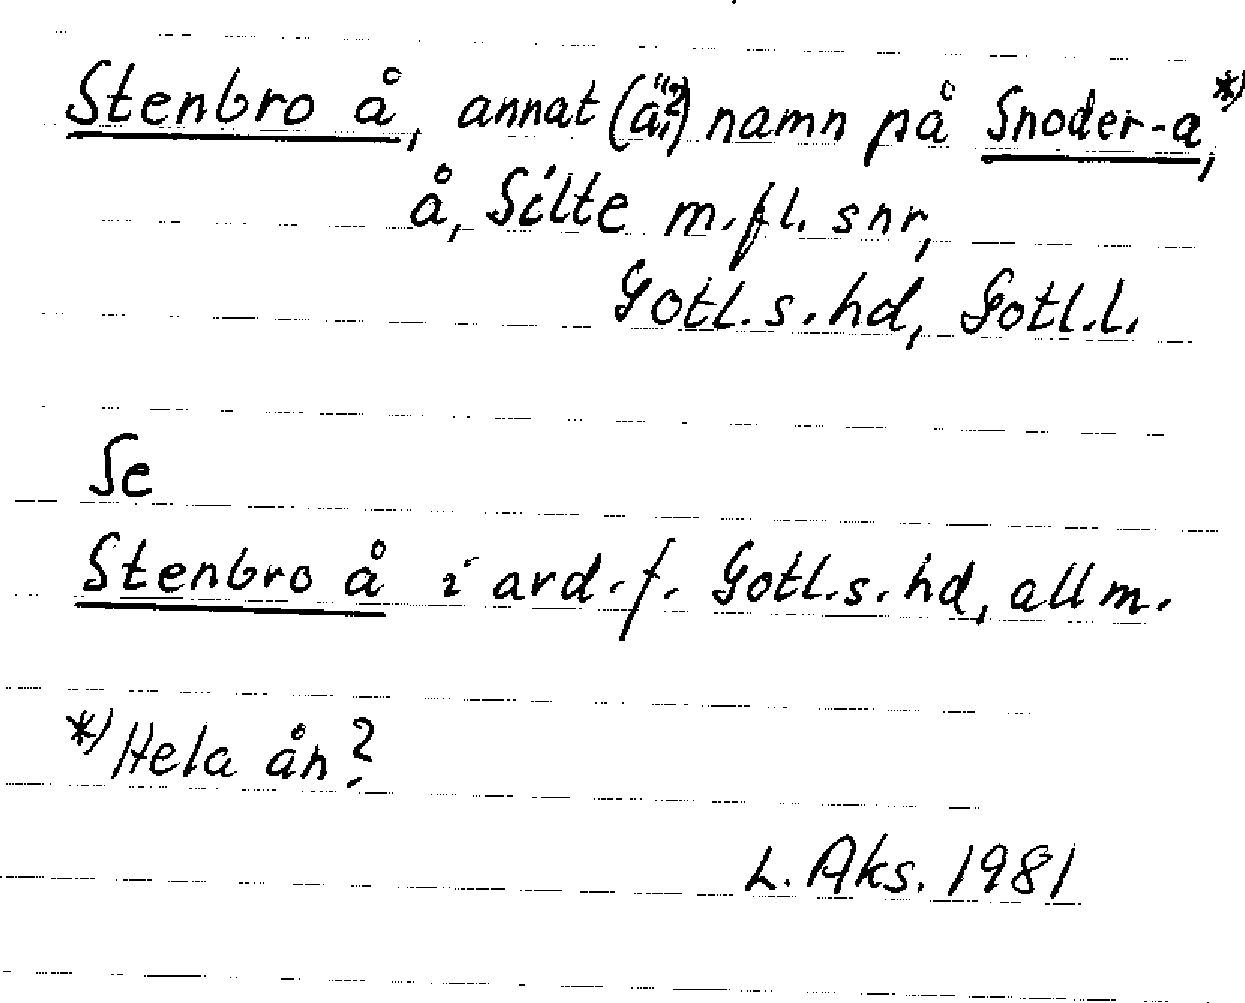 Stenbro å, annat (ä?) namn på Snoder-a*),
å, Silte m.fl. snr,
Gotl.s.hd, Gotl.l.
Se
Stenbro å i ard.f. Gotl.s.hd, allm.
*) Hela ån?
L. Aks. 1981